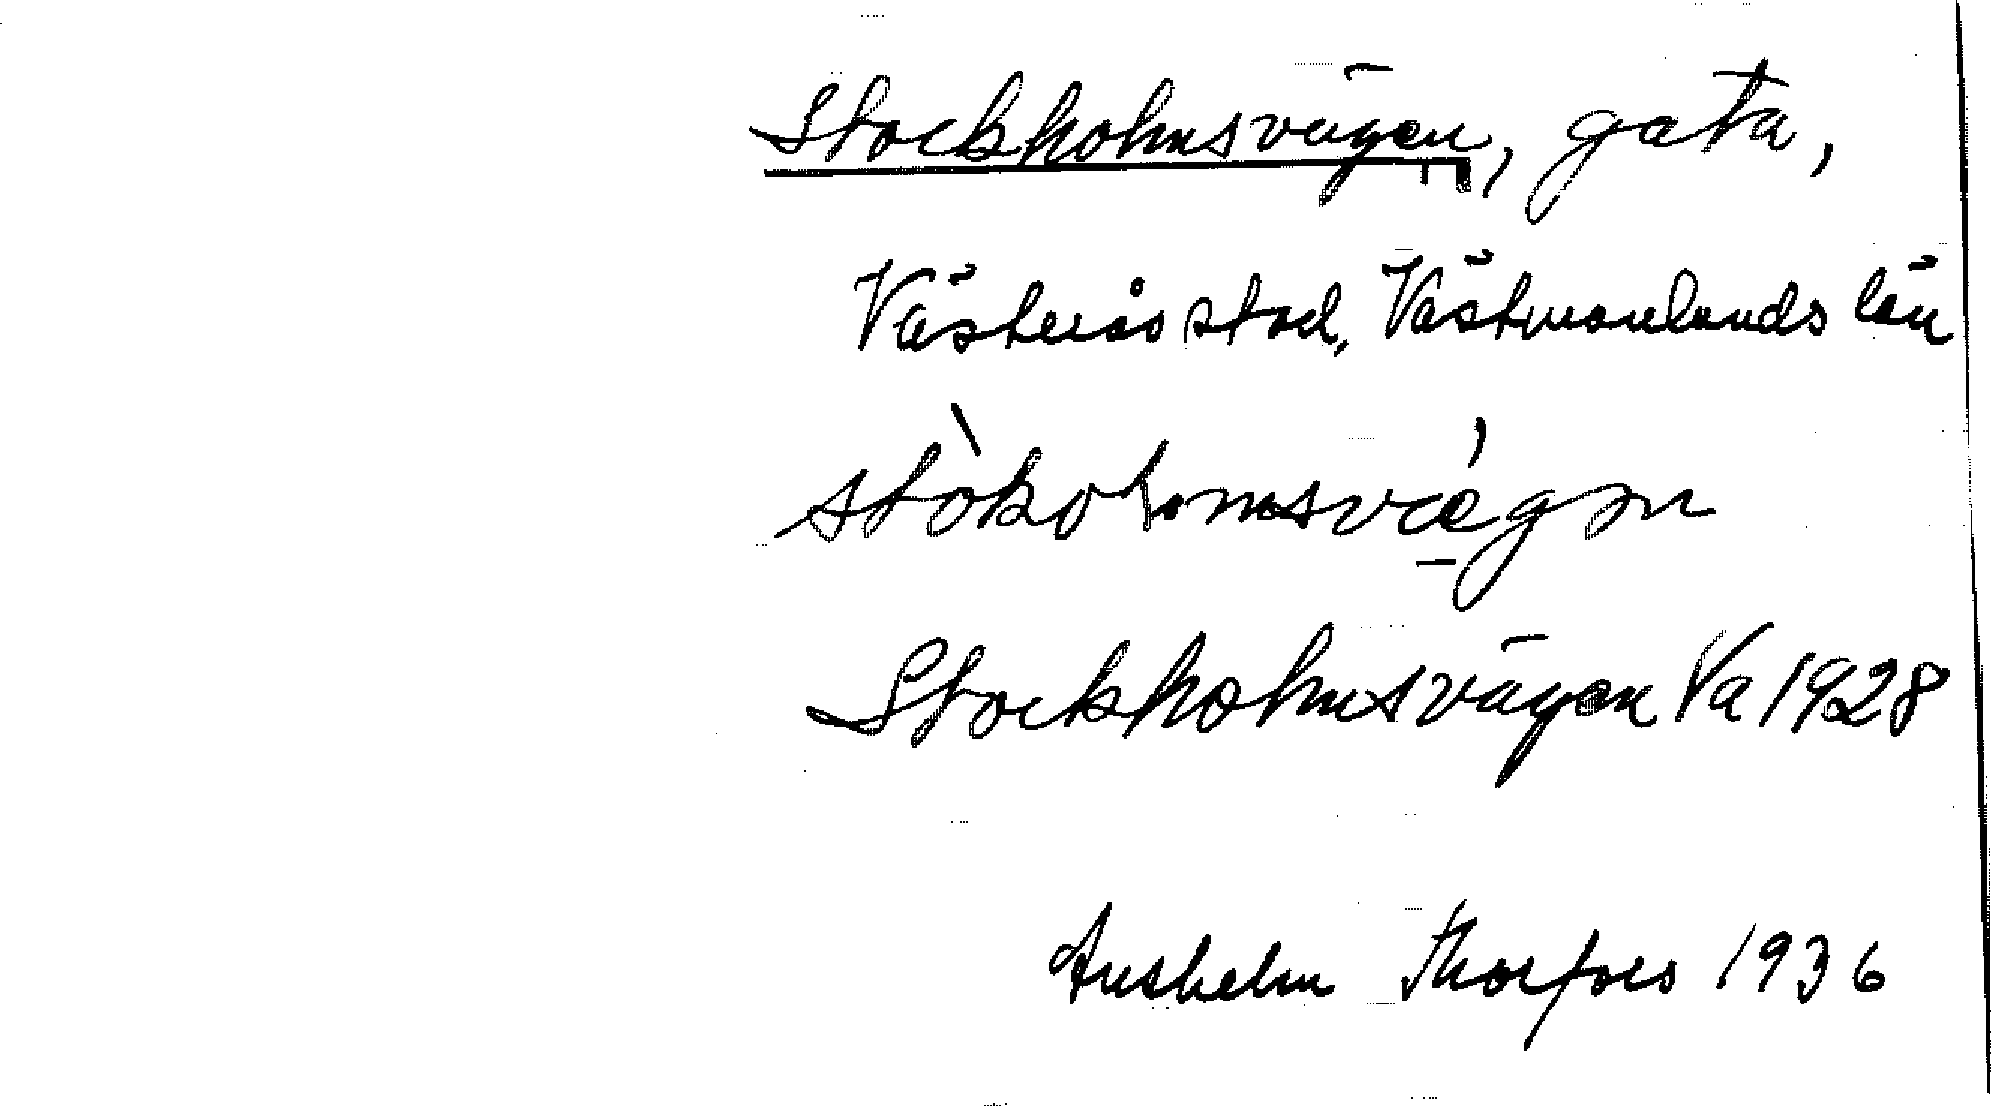 Stockholmsvägen, gata,
Västerås stad, Västmanlands län
stòkolmsvǽgən
Stockholmsvägen Va 1928
Anshelm Thorfors 1936